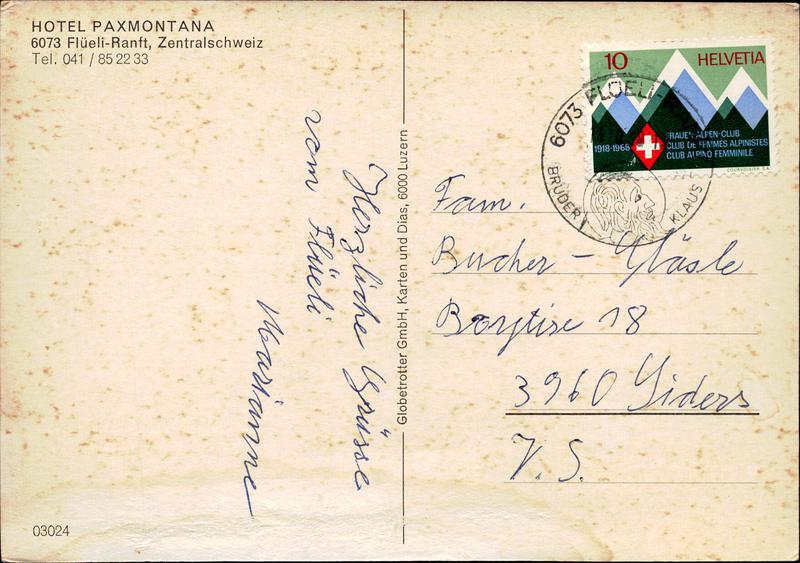 HOTEL PAXMONTANA
6073 Flüeli-Ranft, Zentralschweiz
Tel. 041 / 85 22 33
Herzliche Grüsse
vom Flüeli
Marianne
03024
Globetrotter GmbH, Karten und Dias, 6000 Luzern
10 HELVETIA
1918-1968
FRAUEN-ALPEN-CLUB
CLUB DE FEMMES ALPINISTES
CLUB ALPINO FEMMINILE
COURVOISIER S.A.
6073 FLÜELI
BRUDER KLAUS
Fam.
Bucher - Gläsle
18
3960 Siders
V.S.